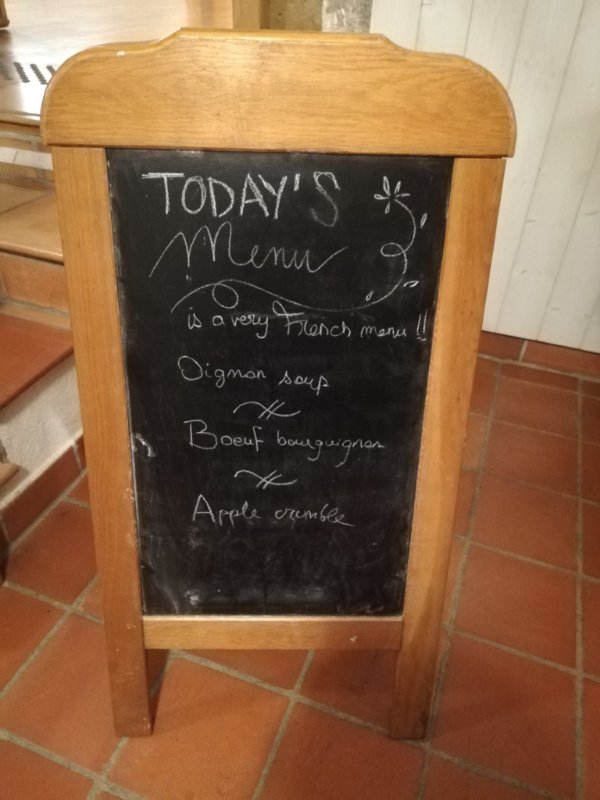 TODAY'S
Menu
is a very French menu !!
Oignon soup
Boeuf bourguignon
Apple crumble